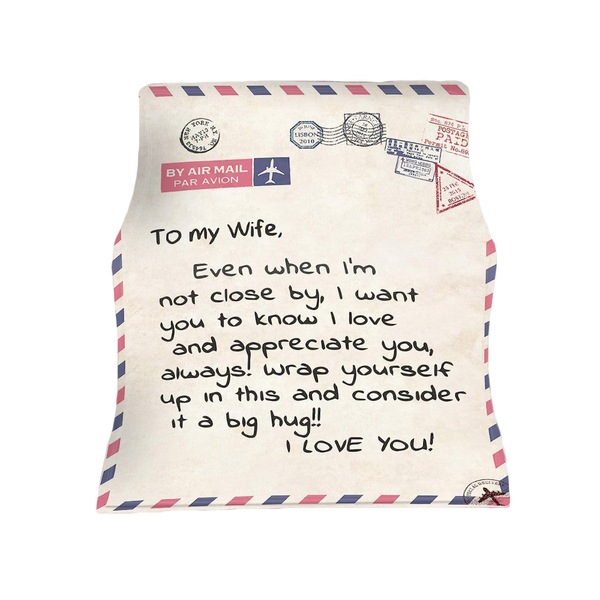 NEW YORK N.Y.
LISBON
2010
POSTAGE
PAID
Permit No.
BY AIR MAIL
PAR AVION
To my Wife,
Even when I'm
not close by, I want
you to know I love
and appreciate you,
always! wrap yourself
up in this and consider
it a big hug!!
I LOVE YOU!